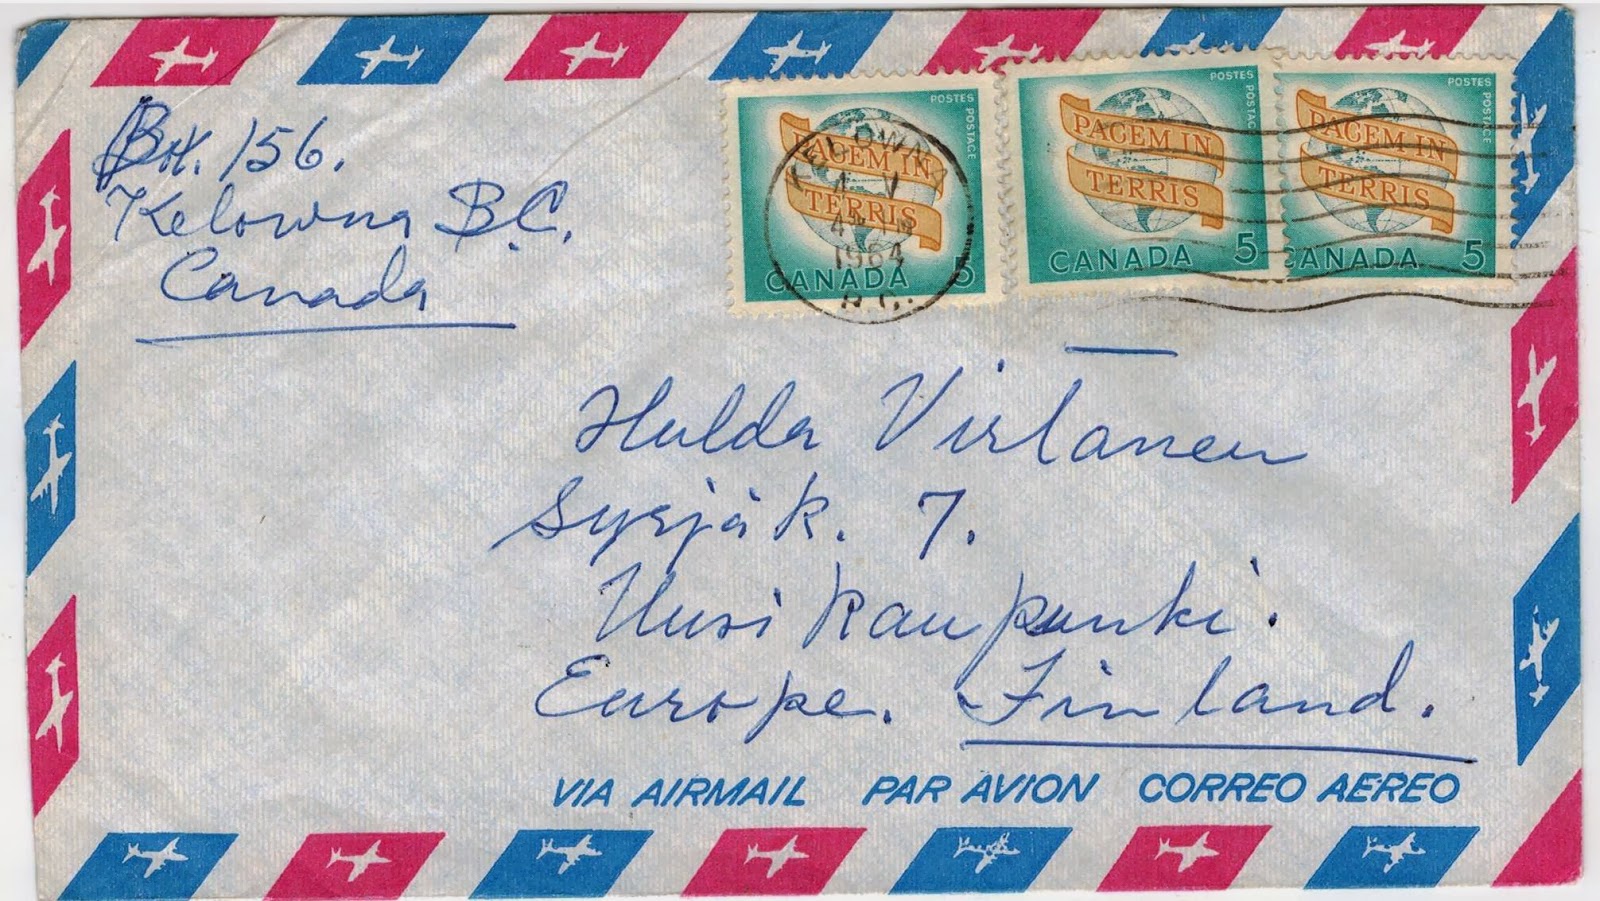 Box. 156.
Kelowna B.C.
Canada
POSTES POSTAGE
PACEM IN
TERRIS
CANADA 5
KELOWNA
1964
B.C.
POSTES POSTAGE
PACEM IN
TERRIS
CANADA 5
POSTES POSTAGE
PACEM IN
TERRIS
CANADA 5
Hulda Virtanen
Syrjäk. 7.
Uusi kaupunki.
Europe. Finland.
VIA AIRMAIL PAR AVION CORREO AEREO